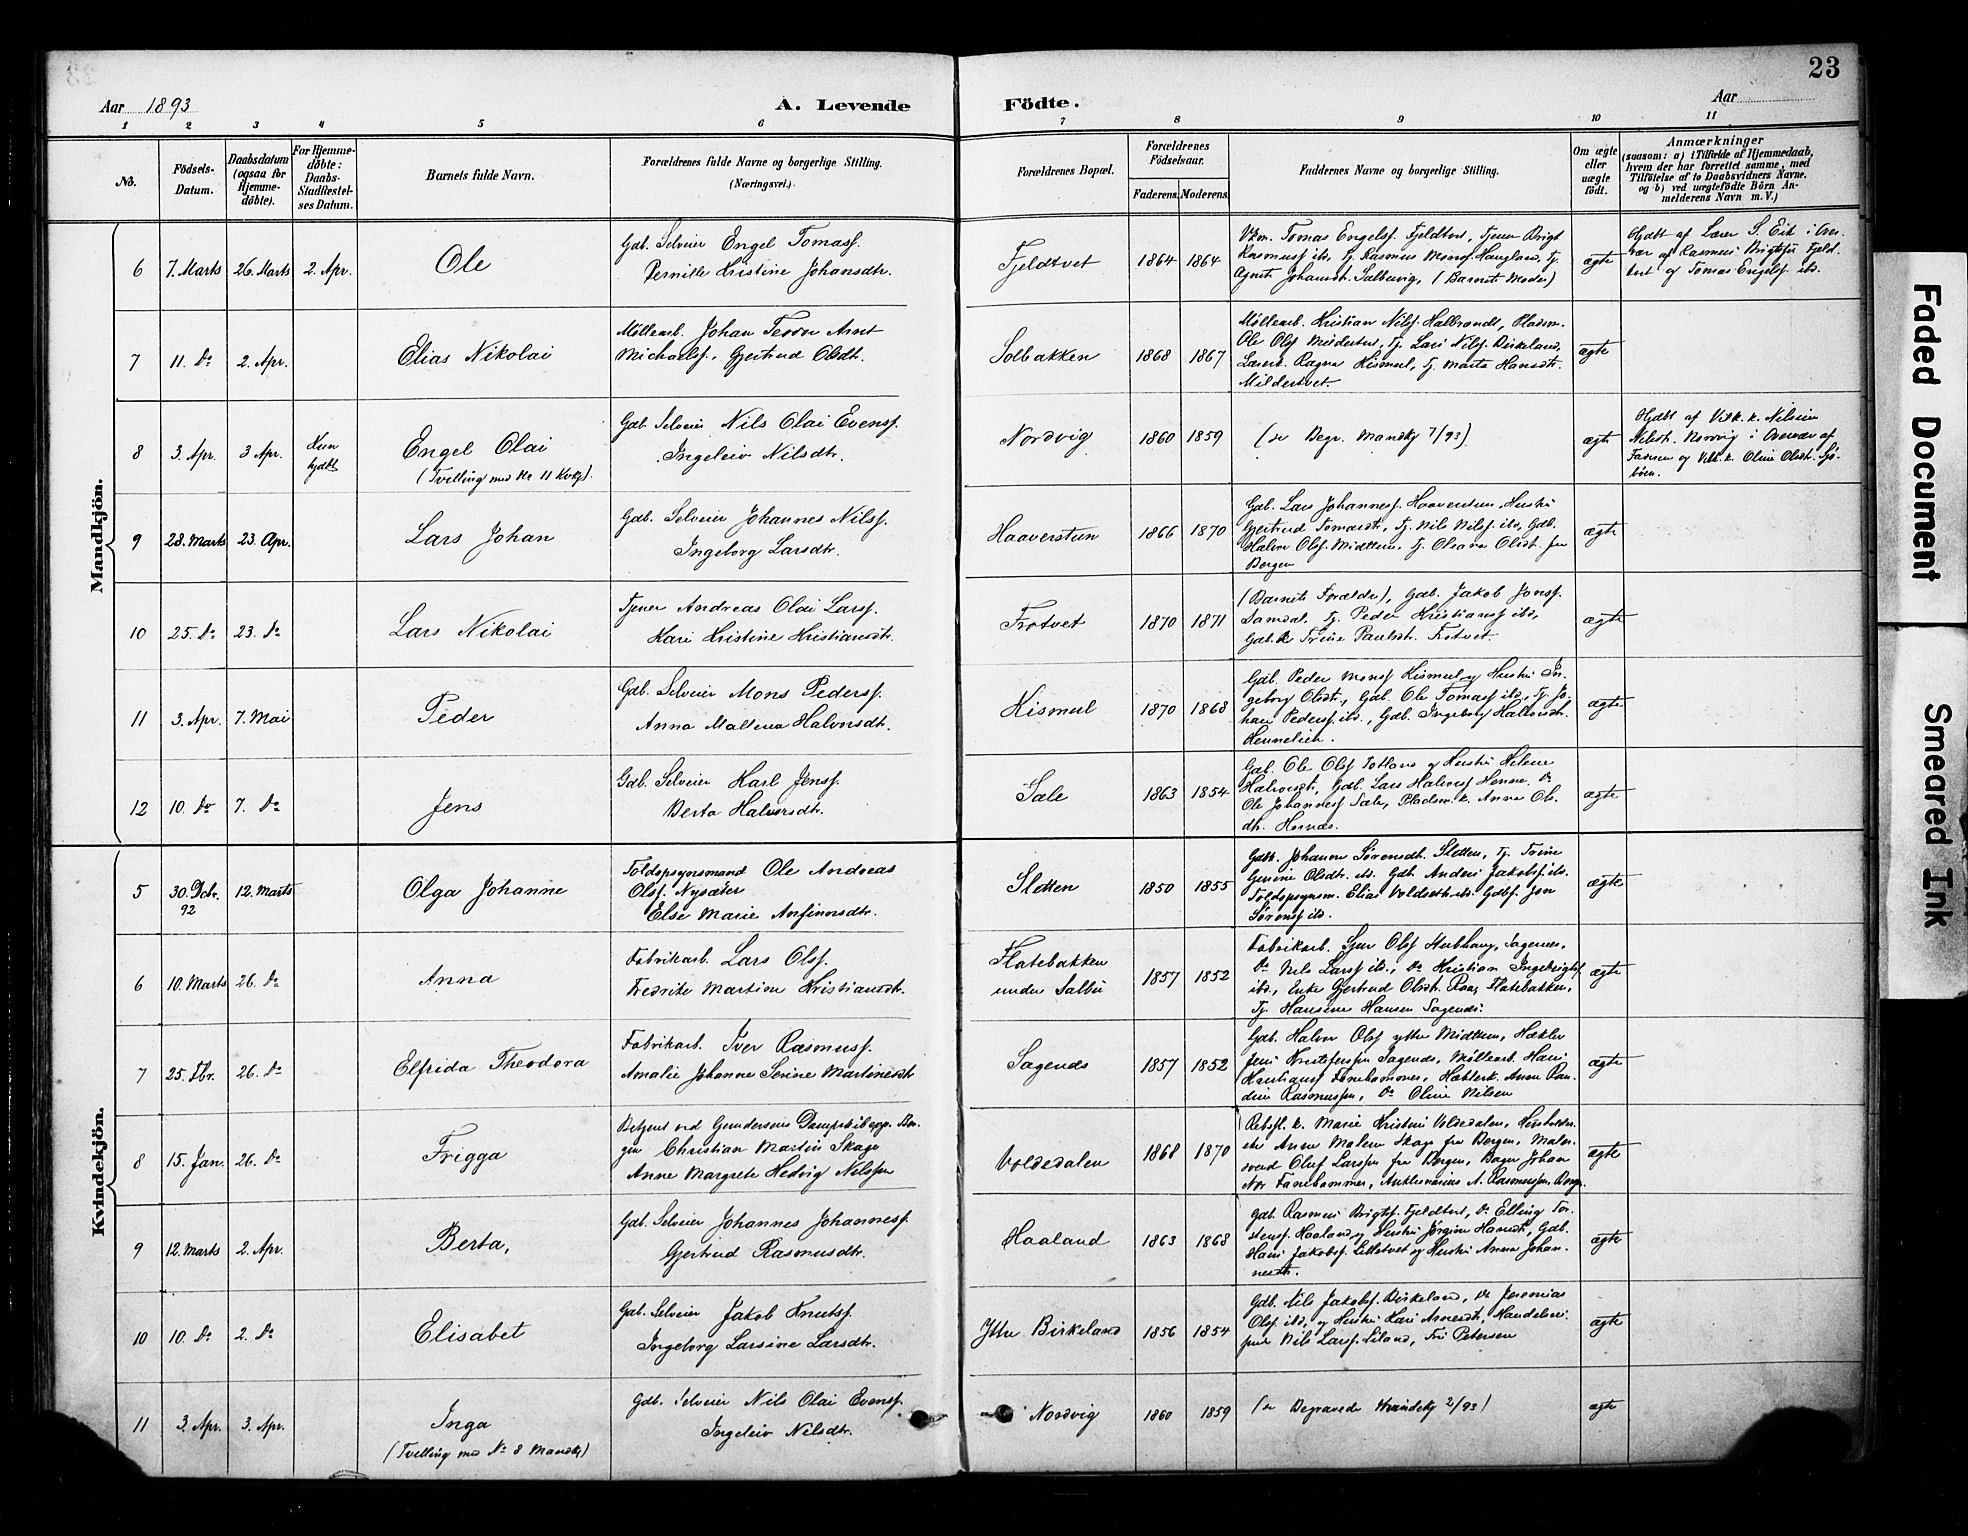 23
Aar 1893
A. Levende
Födte.
Aar
1 2 3 4 5 6 7 8 9 10 11
No.
Födsels-Datum.
Daabsdatum (ogsaa for Hjemme-döbte).
For Hjemme-döbte: Daabs-Stadfæstel-ses Datum.
Barnets fulde Navn.
Forældrenes fulde Navne og borgerlige Stilling. (Næringsvei.)
Forældrenes Bopæl.
Forældrenes Födselsaar.
Faderens. Moderens.
Faddernes Navne og borgerlige Stilling.
Om ægte eller uægte födt.
Anmærkninger
(saasom: a) i Tilfælde af Hjemmedaab,
hvem der har forrettet samme, med
Tilföielse af to Daabsvidners Navne.
og b) ved uægtefödte Börn An-
melderens Navn m. V.)
Mandkjön.
6 7. Marts 26. Marts 2. Apr. Ole
Gdb. Selveier Engel Tomasf.
Pernille Kristine Johansdtr.
Fjeldtvet 1864 1864
Tomas Engelsf. Fjeldtvet, Tjener Brigt
Rasmusf ibd, Tj. Rasmus Monsf. Haugland, Tj.
Agnete Johansdt. Salbuvig, (Barnets Moder)
ægte
Hjdbt af Lærer S. Eid i Over-
vær af Rasmus Brigtsf. Fjeld-
tvet og Tomas Engelsf. ibd.
7 11. Do 2. Apr. Elias Nikolai
Møllearb. Johan Teodor Arnt
Michaelsf., Gjertrud Olsdtr.
Solbakken 1868 1867
Møllearb. Kristian Nilsf. Halbrendt, Pladsm.
Ole Olsf Mildestvet, Tj. Lars Nilsf. Birkeland,
Ragna Kismul, Tj. Marta Hansdt.
Mildestvet.
ægte
8 3. Apr. 3 Apr. Kun hjdbt Engel Olai
(Tvilling med No 11 Kvkj).
Gdb. Selveier Nils Olai Evensf.
Ingeleiv Nilsdtr.
Nordvig 1860 1859
(se Begr. Mandkj 7/93)
ægte
Hjdbt af Nilsine
Nilsdt. Norvig i Overvær af
Faderen og Oline Olsdt. Sjö-
böen.
9 28. Marts 23. Apr. Lars Johan
Gdb. Selveier Johannes Nilsf.
Ingeborg Larsdtr.
Haaverstun 1866 1870
Gdb. Lars Johannesf. Haaverstun, Hustru
Gjertrud Tomasdt., Tj. Nils Nilsf. ibd, Gdb.
Halvor Olsf. Midttun, Tj. Oleana Olsdt. fra
Bergen
ægte
10 25. Do 23. Do Lars Nikolai
Tjener Andreas Olai Larsf.
Kari Kristine Kristiansdtr.
Frotvet 1870 1871
(Barnets Forældre), Gdb. Jakob Jonsf.
Samdal, Tj. Peder Kristiansf ibd,
Gdb.k Trine Paulsdt. Frotvet.
ægte
11 3. Apr. 7. Mai Peder
Gdb. Selveier Mons Pedersf.
Anna Maltena Halvorsdtr.
Kismul 1870 1868
Gdb. Peder Monsf Kismul og Hustru In-
geborg Olsdt., Gdb. Ole Tomasf ibd, Tj. Jo-
han Pedersf. ibd., Gdb. Ingeborg Halvorsdt.
Hennelien.
ægte
12 10. Do 7. Do Jens
Gdb. Selveier Karl Jensf.
Berta Halvorsdtr.
Sæle 1863 1854
Gdb. Ole Olsf Totland og Hustru Helene
Halvorsdt, Gdb. Lars Halvorsf Henne. Do
Ole Johannesf Sæle, Pladsm.k. Anna Ols-
dtr. Hornæs.
ægte
Kvindekjön.
5 30. Dcbr. 92 12. Marts Olga Johanne
Toldopsynsmand Ole Andreas
Olsf. Nysæter
Else Marie Anfinnsdtr.
Sletten 1850 1855
Johanne Sørensdt. Sletten, Tj. Trine
Gurine Olsdt. ibd. Gdb. Anders Jakobsf ibd.
Toldopsynsm. Elias Voldseth ibd. Gdbf. Jon
Sörensf ibd.
ægte
6 10. Marts 26. Do Anna
Fabrikarb. Lars Olsf.
Fredrike Martine Kristiansdtr.
Flatebakken
under Salbu 1857 1852
Fabrikarb. Sjur Olsf Stubhaug, Sagenes,
Do Nils Larsf ibd., Do Kristian Ingebrigtsf
ibd., Enke Gjertrud Olsdt. Raa, Flatebakken,
Tj. Hansine Hansen Sagenes.
ægte
7 25. Fbr. 26. Do Elfrida Theodora
Fabrikarb. Iver Rasmusf.
Amalie Johanne Serine Martinesdt
Sagenes 1857 1852
Gdb. Halvor Olsf ytre Midttun, Hækler
Jens Kristofersen Sagenes, Møllearb. Hans
Kristiansf Fanehammer, Hæklersk. Anne Pau-
line Rasmussen, Do Oline Nilsen
ægte
8 15. Jan. 26. Do Frigga
Betjent ved Gundersens Dampskibsexp. Ber-
gen Christian Martin Skage
Anne Margrete Hedvig Nilssen
Voldedalen 1868 1870
Rebsl. k. Marie Kristine Voldedalen, Husholder-
ske Anne Malene Skage fra Bergen, Maler-
svend Oluf Larssen fra Bergen, Bager Johan
Nor Fanehammer, A. Rasmussen, Bergn.
ægte
9 12. Marts 2. Apr. Berta,
Gdb. Selveier Johannes Johannesf.
Gjertrud Rasmusdtr.
Haaland 1863 1868
Gdb. Rasmus Brigtsf. Fjeldtvet, Do Elling Tor-
stensf. Haaland og Hustru Jörgine Hansdt, Gdb.
Hans Jakobsf. Lilletvet og Hustru Anna Johan-
nesdt.
ægte
10 10. Do 2. Do Elisabet
Gdb. Selveier Jakob Knutsf.
Ingeborg Larsine Larsdtr.
Ytre Birkeland 1856 1854
Gdb. Nils Jakobsf. Birkeland, Do Jeremias
Olsf. ibd, og Hustru Kari Arnesdt, Handelsex-
pedr Nils Larsf. Liland, Frk Petersen
ægte
11 3. Apr. 3. Apr. Inga
(Tvilling med No 8 Mandkj)
Gdb. Selveier Nils Olai Evensf.
Ingeleiv Nilsdtr.
Nordvig 1860 1859
(se Begravede Kvindekj 2/93)
ægte
Faded Document
Smeared Ink